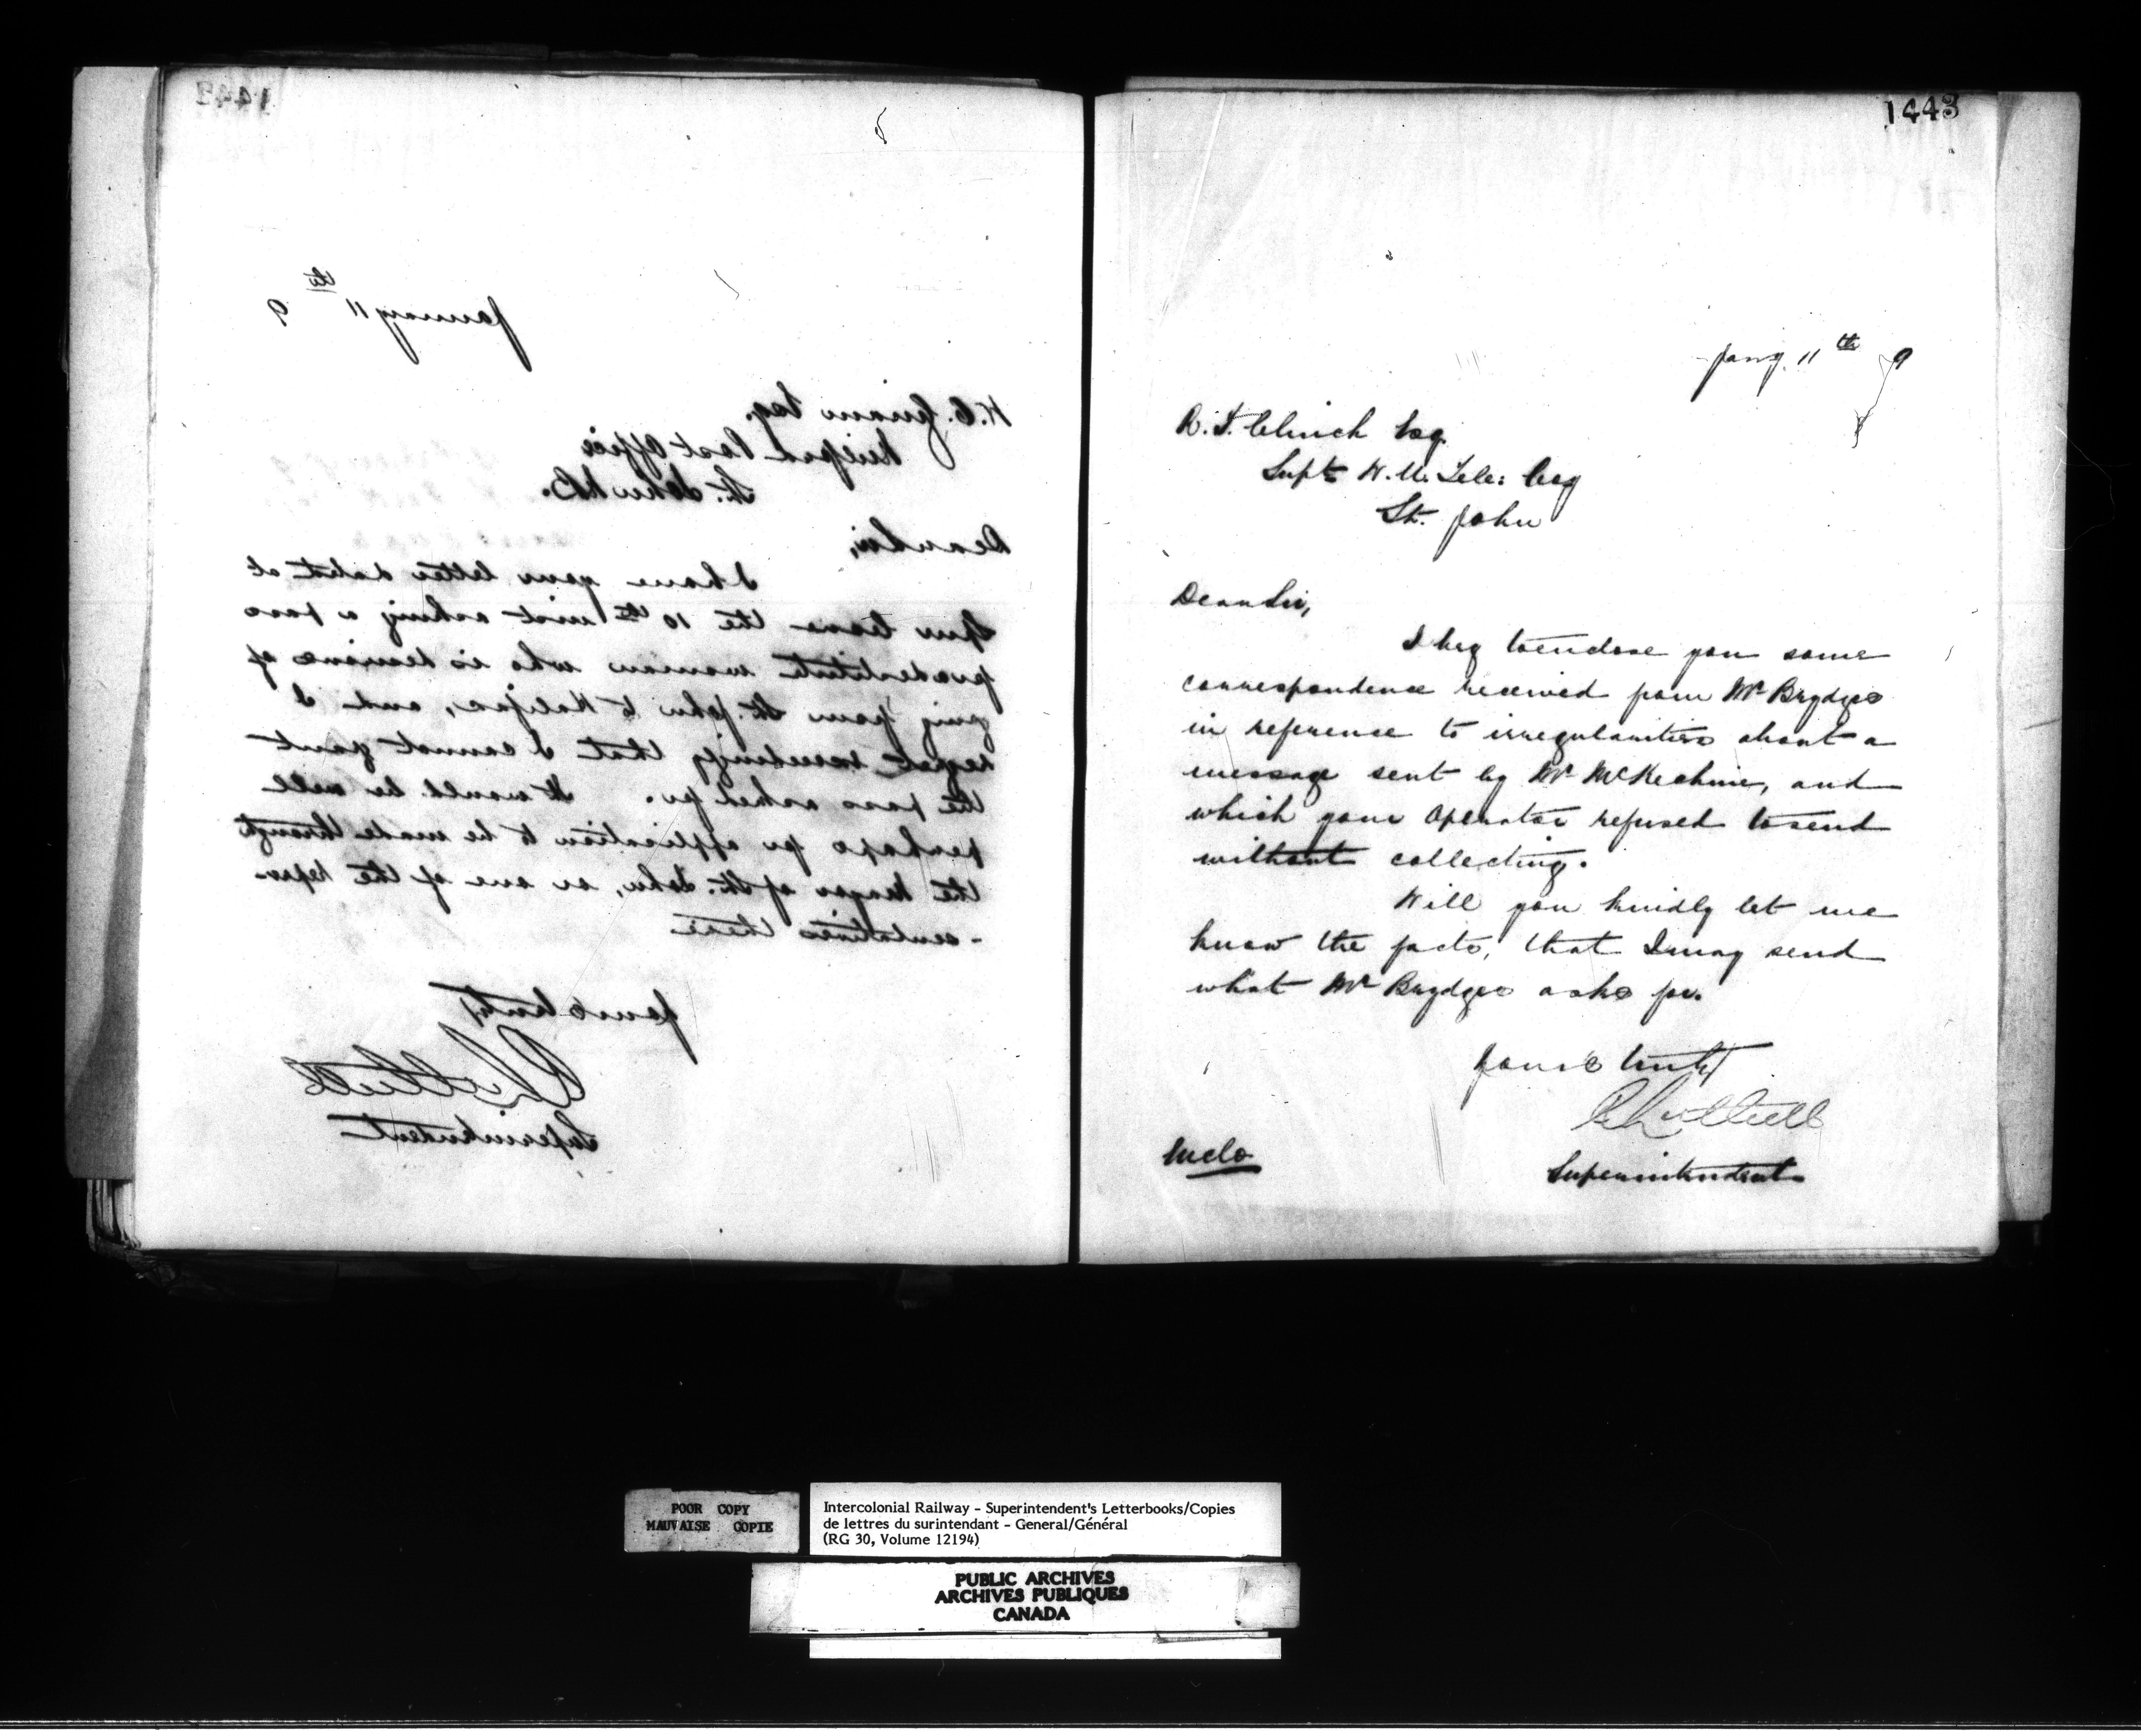 1442
January 11th 9
Esq.
Post Office
St. John NB.
Dear Sir,
I have your letter dated at
the 10th inst asking a pass
for destitute woman who is desirous of
going from St. John to Halifax, and I
regret exceedingly that I cannot grant
the pass asked for. It would be well
perhaps for application to be made through
the Mayor of St. John, or one of the repre
-sentatives there
Yours truly
Superintendent
1443
Jany. 11th 9
R. T. Clinch Esq.
Supt W. U. Tele: Coy
St. John
Dear Sir,
I beg to enclose you some
correspondence received from Mr Brydges
in reference to irregularities about a
message sent by Mr McKechnie, and
which your Operator refused to send
without collecting.
Will you kindly let me
know the facts, that I may send
what Mr Brydges asks for.
Yours truly
Superintendent
Inclo
POOR COPY
MAUVAISE COPIE
Intercolonial Railway - Superintendent's Letterbooks/Copies
de lettres du surintendant - General/Général
(RG 30, Volume 12194)
PUBLIC ARCHIVES
ARCHIVES PUBLIQUES
CANADA